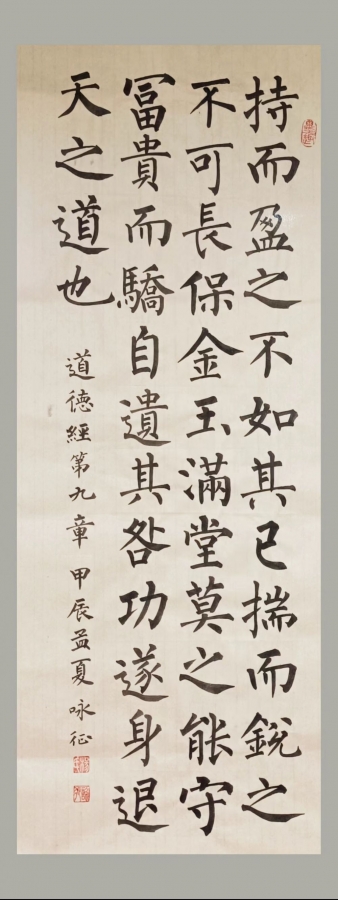 持而盈之不如其已揣而銳之
不可長保金玉滿堂莫之能守
冨貴而驕自遺其咎功遂身退
天之道也
道德經第九章 甲辰孟夏 咏征